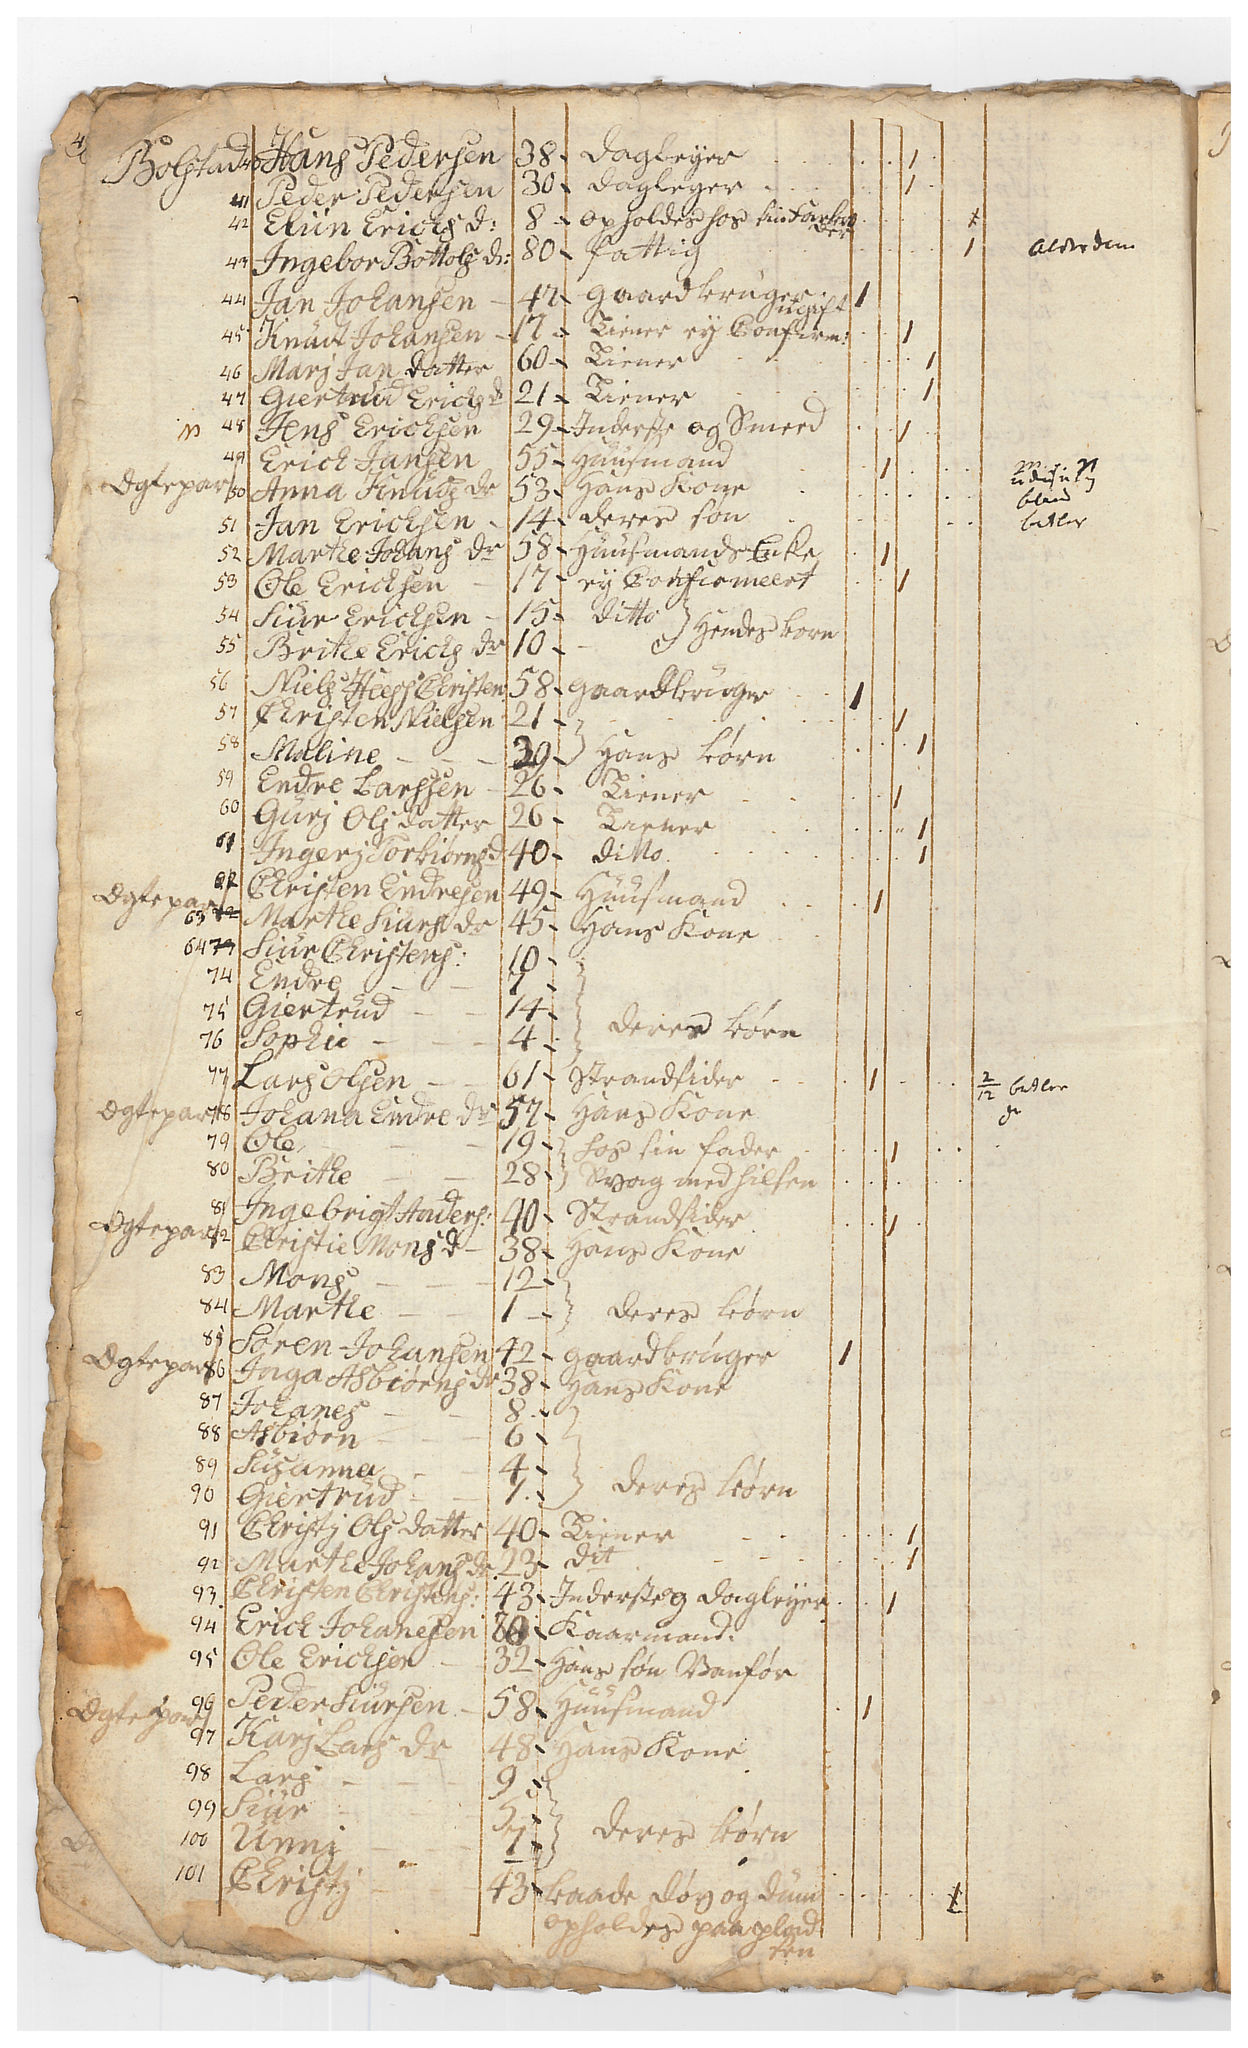 4
Bolstad 40 Hans Pedersen 38 - dagleyer
41 Peder Pedersen 30 - dagleyer
42 Eliin Erichs d: 8 - opholdes hos sin
43 Ingebor Bottols dr: 80 - fattig 1 Alderdom
44 Jan Johansen - 47 - gaardbruger 1
ugift
45 Knud Johansen - 17 - Tiener ey Confirm: 1
46 Marj Jan datter 60 - Tiener 1
47 Giertrud Erichs d 21 - Tiener 1
48 Jens Erichsen 29 - Inderste og Smeed 1
49 Erich Jansen 55 - Huusmand 1
Ægtepar 50 Anna Knuds dr 53 - Hans Kone
blind
51 Jan Erichsen - 14 - deres søn betler
52 Marthe Johans dr 58 - Huusmands Enke 1
53 Ole Erichsen - 17 - ey Confirmeert 1
54 Siur Erichsen - 15 - ditto } Hendes born
55 Brithe Erichs dr 10 -
56 Niels Christen 58 - gaardbruger 1
57 Christen Nielsen 21 - 1
58 Maline - - - 39 - } Hans børn 1
59 Endre Larssen - 26 - Tiener 1
60 Gurj Ols datter 26 - Tiener 1
61 Ingerj Torbiørns d 40 - ditto 1
62 Christen Endresen 49 - Huusmand 1
Ægtepar 63 Marthe Siurs dr 45 - Hans Kone
64 Siur Christens: 10 -
74 Endre - - 7 -
75 Giertrud - - 14 -
76 Sophie - - - 4 - } deres børn
77 Lars Olsen - - 61 - Strandsider 1 2/12 betler
Ægtepar 78 Johana Endre dr 57 - Hans Kone
79 Ole 19 - } hos sin fader 1
80 Brithe - - 28 - } Svag med hilsen
81 Ingebrigt Anders: 40 - Strandsider 1
Ægtepar 82 Christie Mons d - 38 - Hans Kone
83 Mons - - - 12 -
84 Marthe - - 1 - } deres børn
85 Søren Johansen 42 - gaardbruger 1
Ægtepar 86 Inga Asbiørns dr 38 - Hans Kone
87 Johanes - - 8 -
88 Asbiørn - - - 6 -
89 Susanna - - 4 -
90 Giertrud - - 1. - } deres børn
91 Christj Ols datter 40 - Tiener 1
92 Marthe Johans dr 23 - dit 1
93 Christen Christens: 43 - Inderste og dagleyer 1
94 Erich Johanesen 70 - Kaarmand.
95 Ole Erichsen - 32 - Hans søn Vanfør
96 Peder Siursen - 58 - Huusmand 1
Ægtepar 97 Karj Lars dr 48 - Hans Kone
98 Lars - - - 9 -
99 Siur 5 -
100 Unnj - - 1 - } deres børn
101 Christj - - 43 - baade døv og dum 1
opholdes paa plad
sen